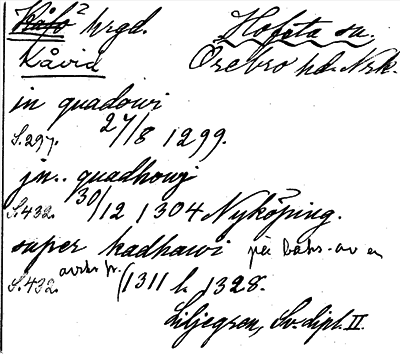 Kåfö 2 hrgd. Hofsta sn.
Kåvid Örebro hd. Nrk.
in quadowi
S. 297. 27/8 1299.
jn.. quadhowj
S. 432. 30/12 1304 Nyköping.
super kadhawi på baks. av en
S. 432. avskr. fr. (1311 l. 1328.
Liljegren, Sv. dipl. II.